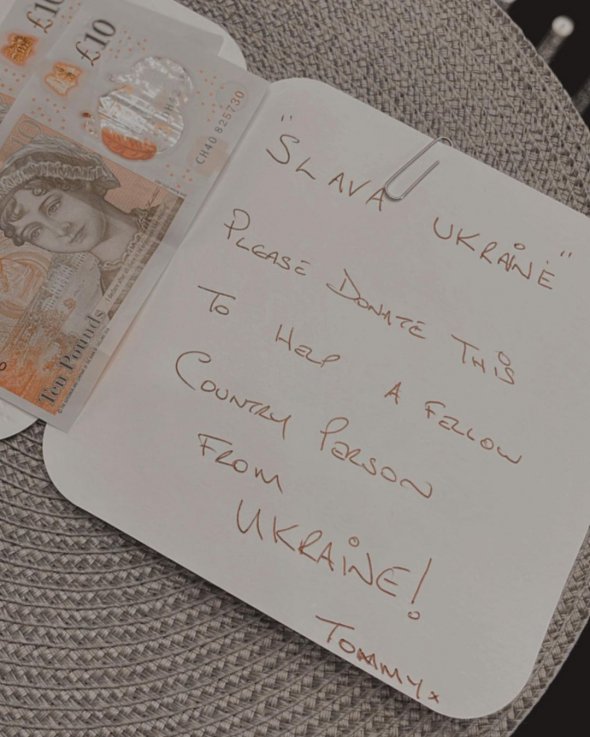 £10
£10
CH40 825730
Ten Pounds
"SLAVA UKRAINE"
PLEASE DONATE THIS
TO HELP A FELLOW
COUNTRY PERSON
FROM
UKRAINE!
TOMMYx